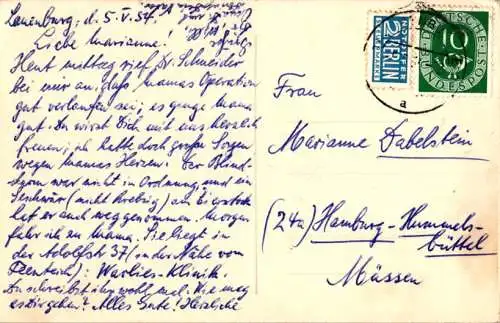 Lauenburg, d. 5. V. 54.
Liebe Marianne!
Heut mittag rief Dr. Schneider
bei mir an, daß Mamas Operation
gut verlaufen sei; es ginge Mama
gut. Du wirst Dich mit uns herzlich
freuen; ich hatte doch große Sorgen
wegen Mamas Herzen. Der Blind-
darm war nicht in Ordnung und ein
Geschwür (nicht krebsig) am Eierstock
hat er auch weggenommen. Morgen
fahr ich zu Mama. Sie liegt in
der Adolfstr 37 (in der Nähe vom
): Warlies-Klinik.
Du schreibst ihr wohl mal. Wie mag
es Dir gehen? Alles Gute! Herzliche
NOTOPFER
2 BERLIN
STEUERMARKE
DEUTSCHE
10
BUNDESPOST
a
Frau
Marianne Dabelstein
(24a) Hamburg-Hummels-
büttel
Müssen